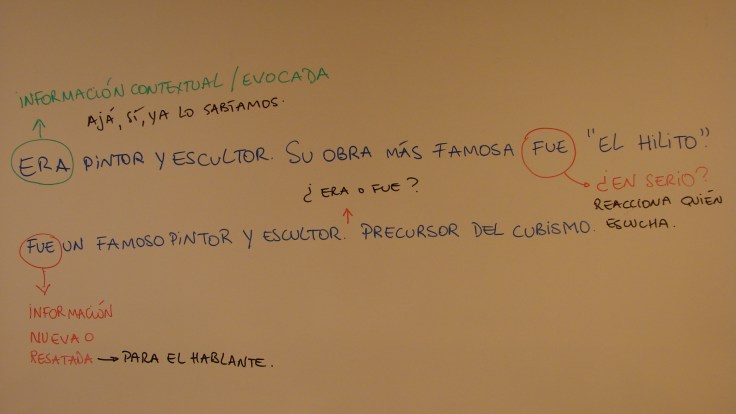 INFORMACIÓN CONTEXTUAL / EVOCADA
AJÁ, SÍ, YA LO SABÍAMOS.
ERA PINTOR Y ESCULTOR. SU OBRA MÁS FAMOSA FUE "EL HILITO".
¿EN SERIO?
REACCIONA QUIÉN
ESCUCHA.
¿ERA O FUE?
FUE UN FAMOSO PINTOR Y ESCULTOR. PRECURSOR DEL CUBISMO.
INFORMACIÓN
NUEVA O
RESATADA → PARA EL HABLANTE.